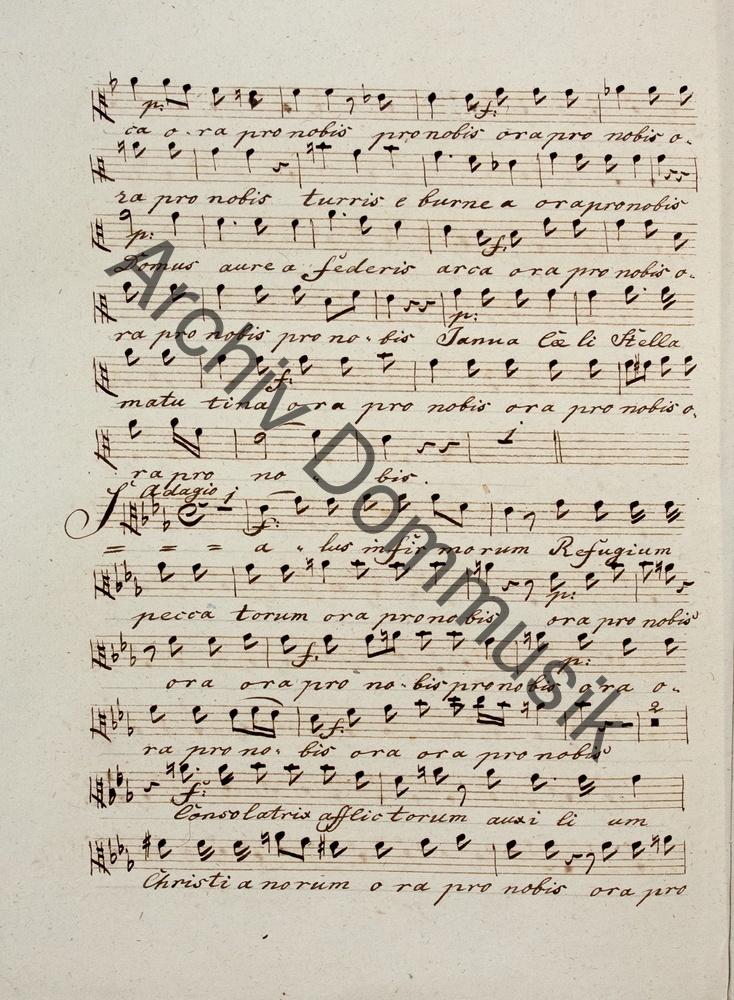 p:
f:
ca o-ra pro nobis pro nobis ora pro nobis o-
ra pro nobis turris e burne a ora pro nobis
p:
f:
Domus aure a foederis arca ora pro nobis o-
p:
ra pro nobis pro no-bis Janua Cœ li Stella
f:
matu tina ora pro nobis ora pro nobis o-
1
ra pro no bis.
Adagio
1
f:
= = = a - lus infir morum Refugium
p:
pecca torum ora pro nobis ora pro nobis
f:
p:
ora ora pro no-bis pro nobis ora o-
f:
2
ra pro no-bis ora ora pro nobis
f:
Consolatrix afflictorum auxi li um
Christi a norum o ra pro nobis ora pro
Archiv Dommusik